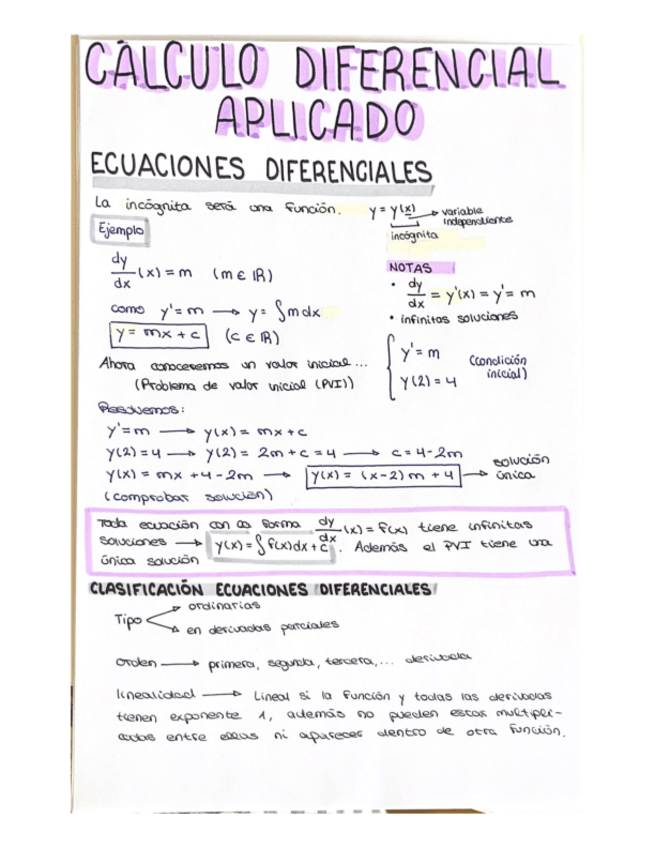 CÁLCULO DIFERENCIAL
APLICADO
ECUACIONES DIFERENCIALES
La incógnita será una función. y = y(x) → variable independiente
incógnita
Ejemplo
dy/dx (x) = m (m ∈ ℝ)
como y' = m → y = ∫ m dx
y = mx + c (c ∈ ℝ)
NOTAS
• dy/dx = y'(x) = y' = m
• infinitas soluciones
Ahora conoceremos un valor inicial...
(Problema de valor inicial (PVI))
{ y' = m
y(2) = 4
(condición inicial)
Resolvemos:
y' = m → y(x) = mx + c
y(2) = 4 → y(2) = 2m + c = 4 → c = 4 - 2m
y(x) = mx + 4 - 2m → y(x) = (x-2) m + 4 → solución única
(comprobar solución)
Toda ecuación con la forma dy/dx (x) = f(x) tiene infinitas
soluciones → y(x) = ∫ f(x) dx + c . Además el PVI tiene una
única solución
CLASIFICACIÓN ECUACIONES DIFERENCIALES
Tipo
ordinarias
en derivadas parciales
Orden → primera, segunda, tercera,... derivada
linealidad → Lineal si la función y todas las derivadas
tienen exponente 1, además no pueden estar multipli-
cadas entre ellas ni aparecer dentro de otra función.